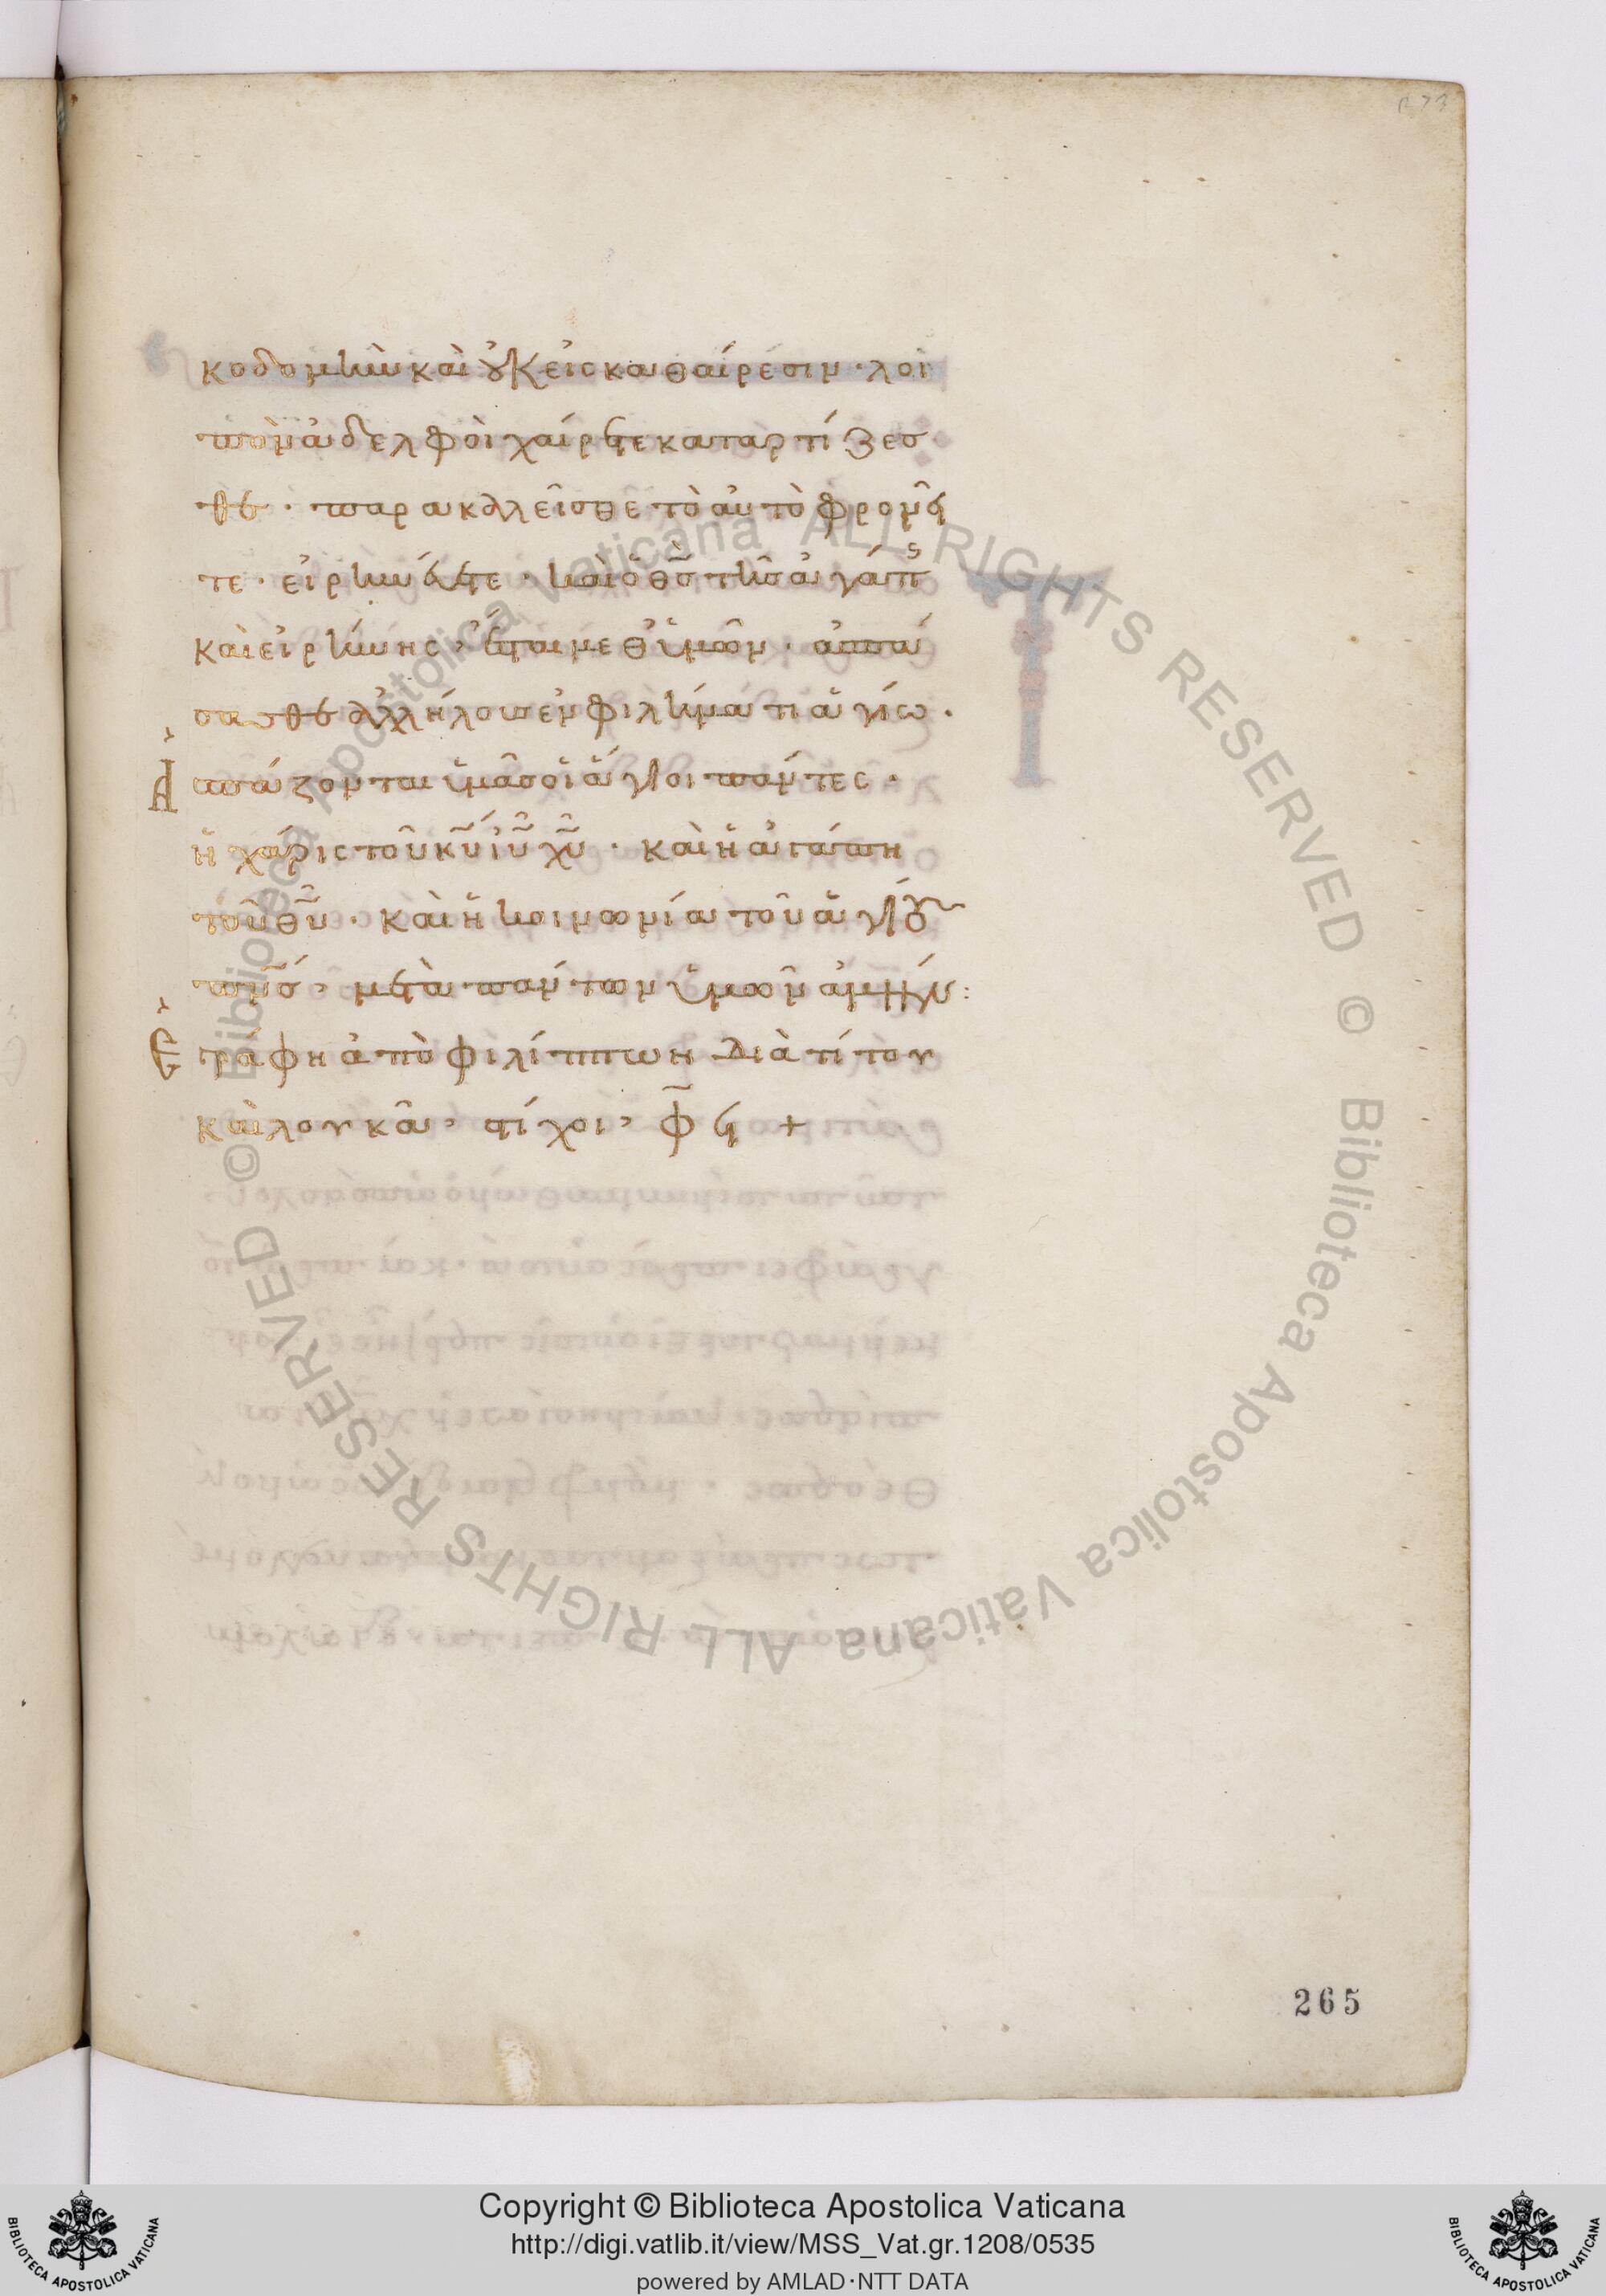 κοδομὴν καὶ οὐκ εἰς καθαίρεσιν · λοι
πὸν ἀδελφοὶ χαίρετε καταρτίζεσ
θε · παρακαλεῖσθε τὸ αὐτὸ φρονεῖ
τε · εἰρηνεύετε · καὶ ὁ θς̅ τῆς ἀγάπης
καὶ εἰρήνης, ἔσται μεθ' ὑμῶν · ἀσπά
σασθε ἀλλήλους ἐν φιλήματι ἁγίω ·
Ἀσπάζονται ὑμᾶς οἱ ἅγιοι πάντες ·
ἡ χάρις τοῦ κυ̅ ιυ̅ χυ̅ · καὶ ἡ ἀγάπη
τοῦ θυ̅ · καὶ ἡ κοινωνία τοῦ ἁγίου
πνς̅, μετὰ πάντων ὑμῶν ἀμήν :
Ἐγράφη ἀπὸ φιλίππων διὰ τίτου
καὶ λουκᾶ, στίχοι, φ̅ +
265
ALL RIGHTS RESERVED © Biblioteca Apostolica Vaticana ALL RIGHTS RESERVED © Biblioteca Apostolica Vaticana
Copyright © Biblioteca Apostolica Vaticana
http://digi.vatlib.it/view/MSS_Vat.gr.1208/0535
powered by AMLAD·NTT DATA
BIBLIOTECA APOSTOLICA VATICANA
BIBLIOTECA APOSTOLICA VATICANA